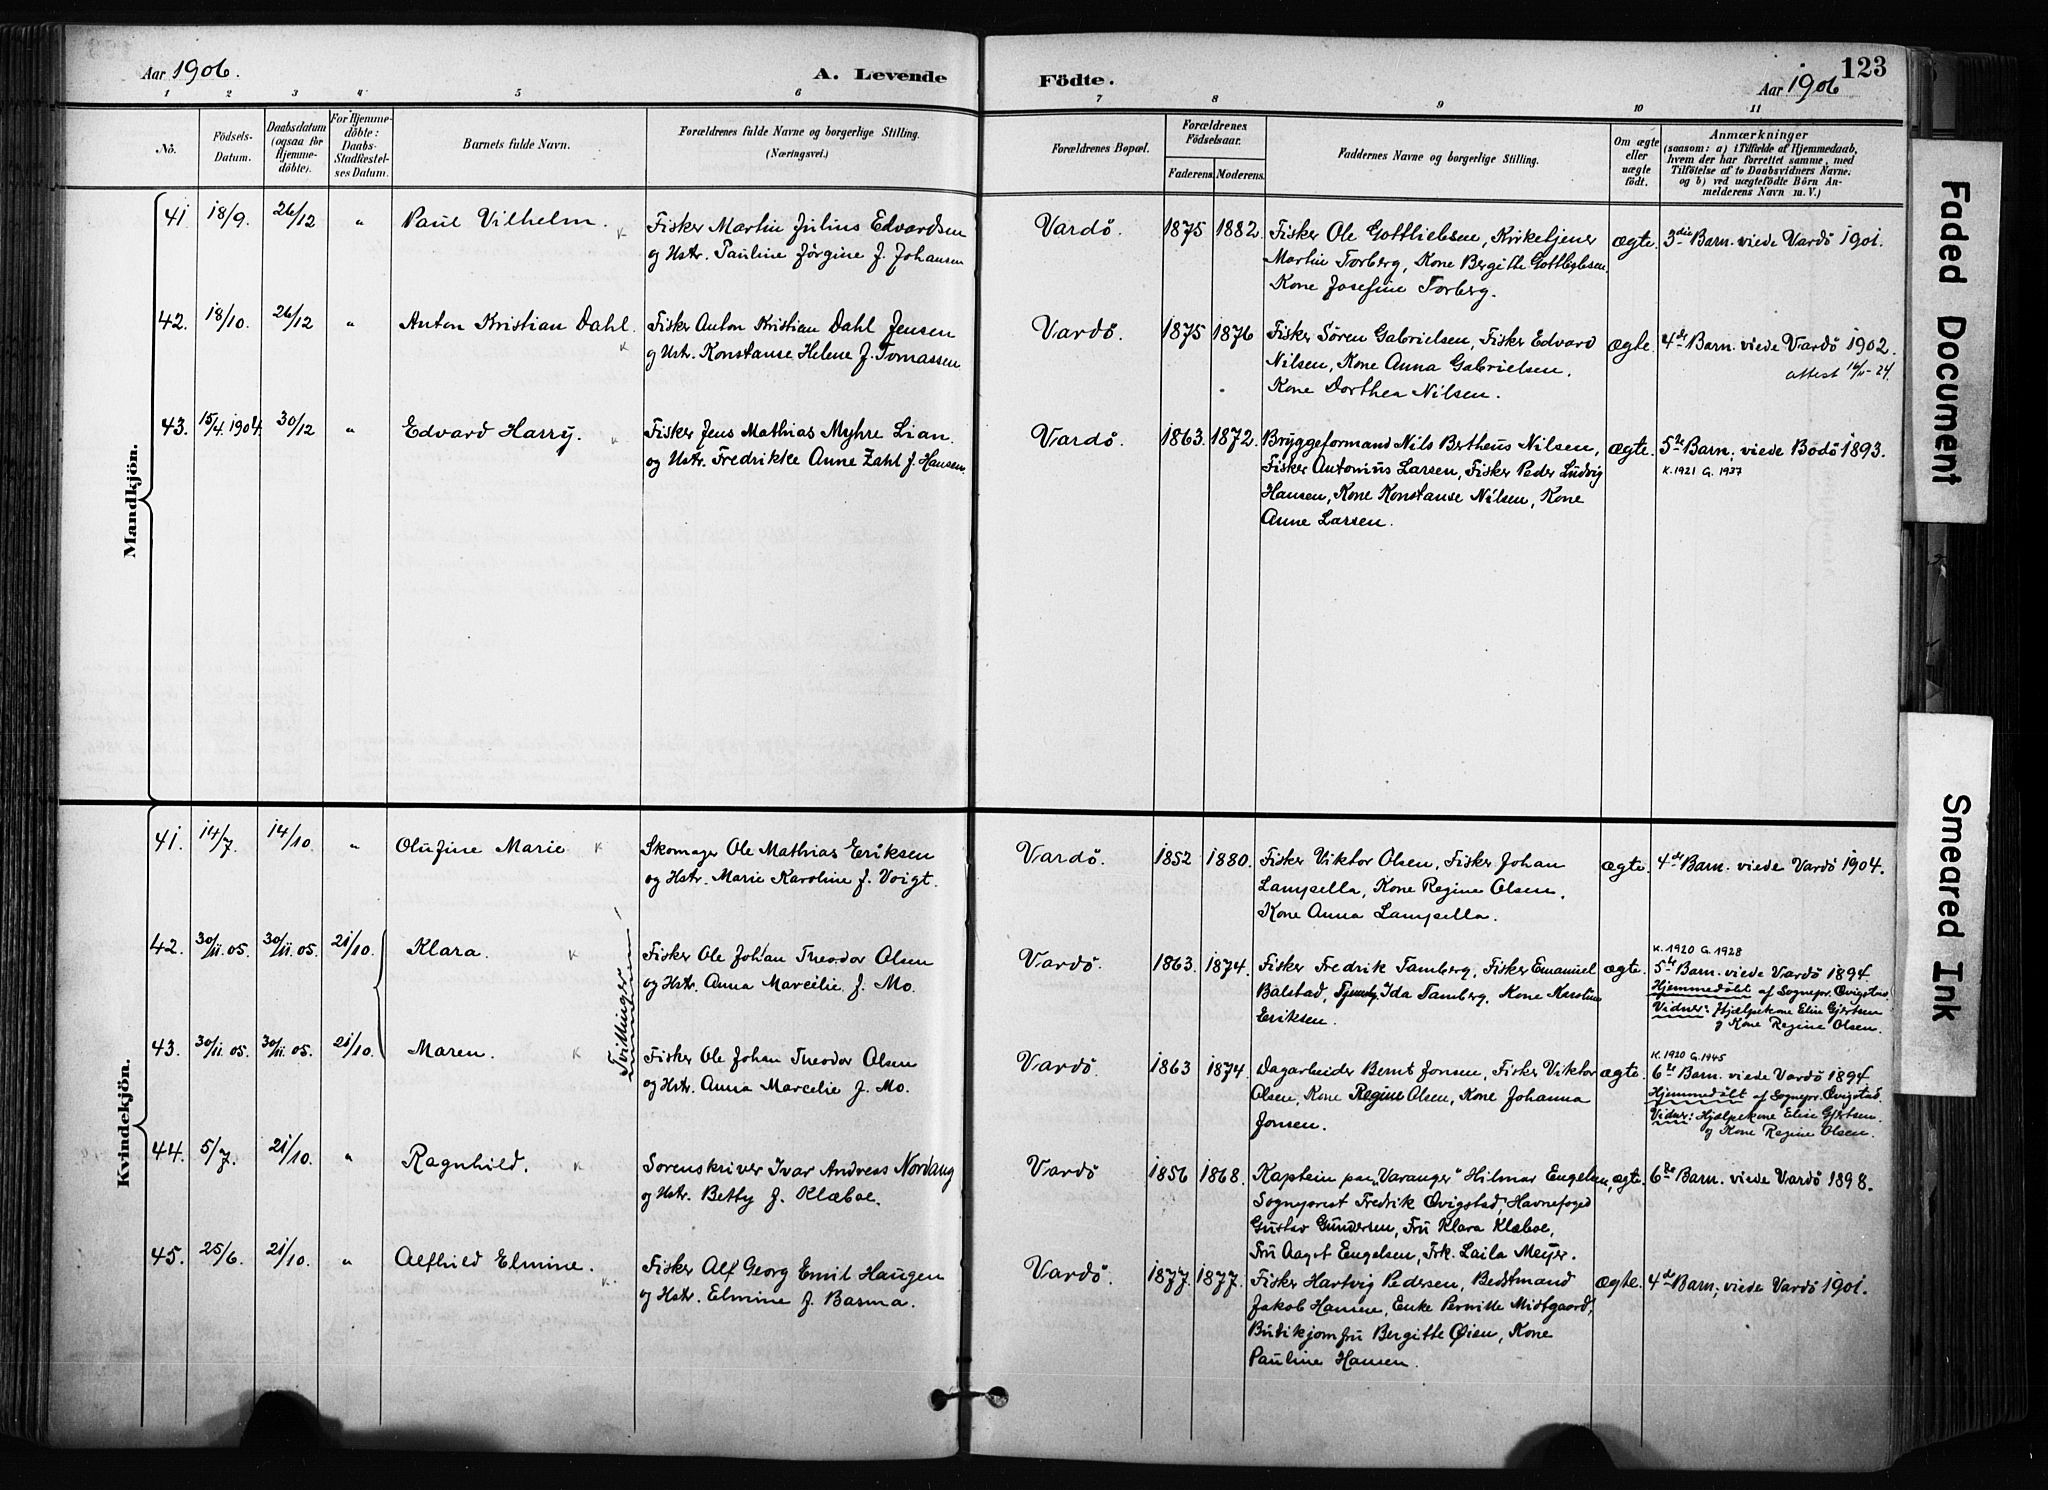 Aar 1906.
A. Levende
Födte.
Aar 1906
123
1 2 3 4 5 6 7 8 9 10 11
No.
Födsels-Datum.
Daabsdatum (ogsaa for Hjemmedöbte).
For Hjemmedöbte: Daabs-Stadfæstelses Datum.
Barnets fulde Navn.
Forældrenes fulde Navne og borgerlige Stilling.
(Næringsvei.)
Forældrenes Bopæl.
Forældrenes Födselsaar.
Faderens. Moderens.
Faddernes Navne og borgerlige Stilling.
Om ægte eller uægte födt.
Anmærkninger
(saasom: a) i Tilfælde af Hjemmedaab,
hvem der har forrettet samme, med
Tilföielse af to Daabsvidners Navne;
og b) ved uægtefödte Börn Anmelderens Navn m. V.)
Mandkjön.
41 18/9. 26/12 " Paul Vilhelm. K Fisker Martin Julius Edvardsen Vardö. 1875 1882. Fisker Ole Gottliebsen, Kirketjener ægte. 3die Barn. viede Vardö 1901.
og Hstr. Pauline Jörgine f. Johansen Martin Torberg, Kone Bergitte Gottliebsen,
Kone Josefine Torberg.
42. 18/10. 26/12 " Anton Kristian Dahl. K Fisker Anton Kristian Dahl Jensen Vardö. 1875 1876 Fisker Sören Gabrielsen, Fisker Edvard ægte. 4de Barn. viede Vardö 1902.
og Hstr. Konstanse Helene f. Tomassen Nilsen, Kone Anna Gabrielsen. attest 16/11-24.
Kone Dorthea Nilsen.
43. 15/4. 1904. 30/12 " Edvard Harry. K Fisker Jens Mathias Myhre Lian. Vardö. 1863. 1872. Bryggeformand Nils Bertheus Nilsen, ægte. 5te Barn; viede Bodö 1893.
og Hstr. Fredrikke Anne Zahl f. Hansen. Fisker Antonius Larsen, Fisker Peder Ludvig K. 1921 G. 1937
Hansen, Kone Konstanse Nilsen, Kone
Anne Larsen.
Kvindekjön.
41. 14/7. 14/10. " Olufine Marie K Skomager Ole Mathias Eriksen Vardö. 1852 1880. Fisker Viktor Olsen, Fisker Johan ægte. 4de Barn. viede Vardö 1904.
og Hstr. Marie Karoline f. Voigt. Lampella, Kone Regine Olsen,
Kone Anna Lampella.
Tvillinger
K. 1920 G. 1928
42. 30/11.05. 30/11.05. 21/10. Klara. K Fisker Ole Johan Theodor Olsen Vardö. 1863. 1874. Fisker Fredrik Tamberg, Fisker Emanuel ægte. 5te Barn. viede Vardö 1894.
og Hstr. Anna Marcelie f. Mo. Balstad, Ida Tamberg, Kone Karoline Hjemmedöbt af Sognepr. Qvigstad.
Eriksen. Vidner: Hjælpekone Elise Gjertsen
og Kone Regine Olsen.
K. 1920 G. 1945
43. 30/11.05. 30/11.05. 21/10. Maren. K Fisker Ole Johan Theodor Olsen Vardö. 1863 1874. Dagarbeider Bernt Jonsen, Fisker Viktor ægte. 6te Barn. viede Vardö 1894
og Hstr. Anna Marcelie f. Mo. Olsen, Kone Regine Olsen, Kone Johanna Hjemmedöbt af Sognepr. Qvigstad.
Jonsen. Vidner: Hjælpekone Elise Gjertsen
og Kone Regine Olsen.
44. 5/7. 21/10. " Ragnhild. K Sorenskriver Ivar Andreas Nordang Vardö 1856 1868. Kaptein paa „Varanger" Hilmar Engelsen, ægte. 6te Barn. viede Vardö 1898.
og Hstr. Betty f. Klæboe. Sogneprest Fredrik Qvigstad, Havnefoged
Gustav Gundersen, Fru Klara Klæboe,
Fru Aagot Engelsen, Frk. Laila Meyer.
45. 25/6. 21/10. " Alfhild Elmine. K. Fisker Alf Georg Emil Haugen Vardö. 1877. 1877. Fisker Hartvig Pedersen, Bedstmand ægte. 4de Barn; viede Vardö 1901.
og Hstr. Elmine f. Basma. Jakob Hansen, Enke Pernille Midtgaard,
Butikjomfru Bergitte Öien, Kone
Pauline Hansen.
Faded Document
Smeared Ink